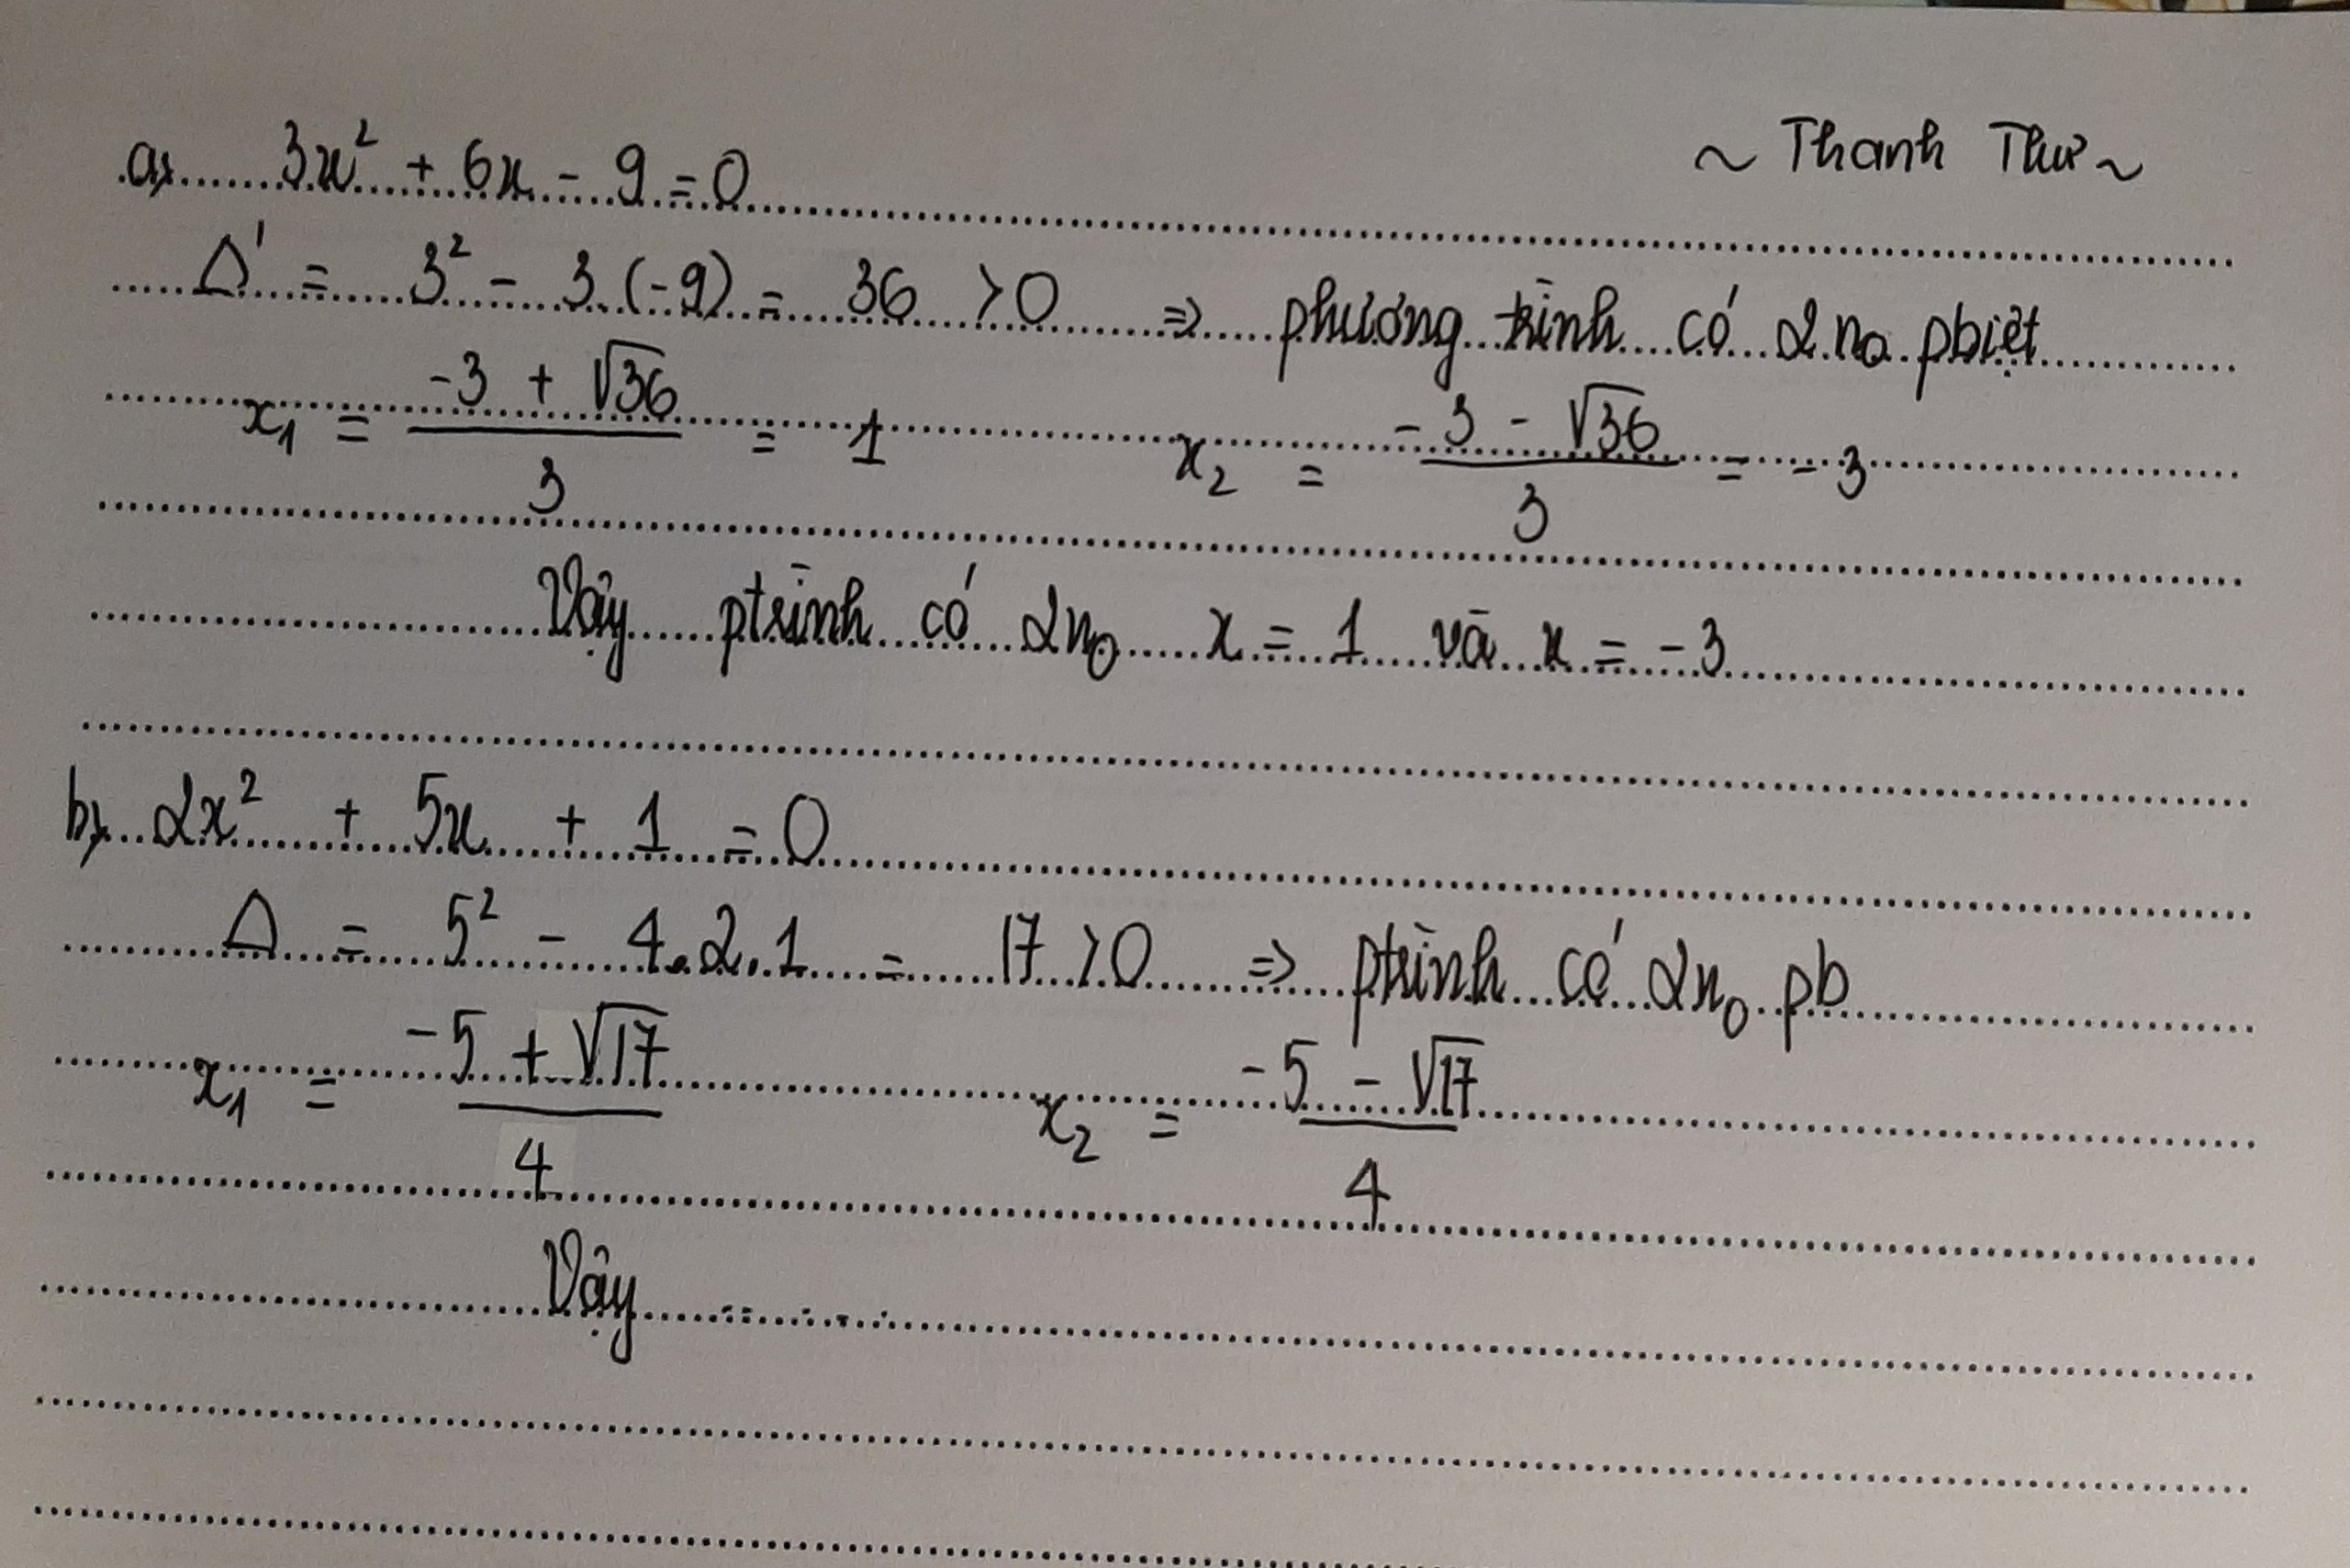 ~ Thanh Thư ~
a) 3x² + 6x - 9 = 0
Δ' = 3² - 3.(-9) = 36 > 0 => phương trình có 2 no pbiệt
x₁ = (-3 + √36)/3 = 1 x₂ = (-3 - √36)/3 = -3
Vậy ptrình có 2no x = 1 và x = -3
b) 2x² + 5x + 1 = 0
Δ = 5² - 4.2.1 = 17 > 0 => ptrình có 2no pb
x₁ = (-5 + √17)/4 x₂ = (-5 - √17)/4
Vậy ........